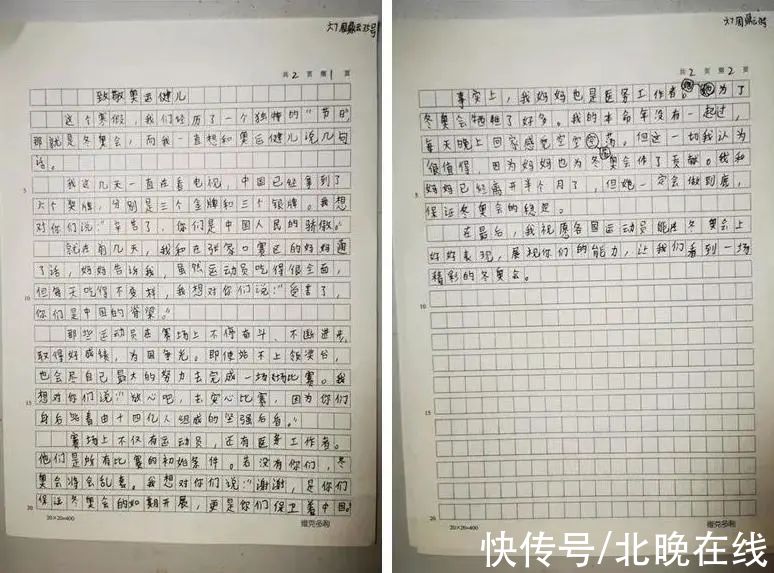 六7周鼎云35号
共 2 页 第 1 页
致敬奥运健儿
这个寒假，我们经历了一个独特的“节日”
那就是冬奥会，而我一直想和奥运健儿说几句
话。
我这几天一直在看电视，中国已经拿到了
六个奖牌，分别是三个金牌和三个银牌。我想
对你们说：“辛苦了，你们是中国人民的骄傲。”
就在前几天，我和在张家口赛区的妈妈通
了话，妈妈告诉我，虽然运动员吃得很全面，
但每天吃得不变样，我想对你们说：“受苦了，
你们是中国的脊梁。”
那些运动员在赛场上不停奋斗、不断进步，
取得好成绩，为国争光。即使站不上领奖台，
也会尽自己最大的努力去完成一场场比赛。我
想对你们说：“放心吧，去安心比赛，因为你们
身后站着由十四亿人组成的坚强后盾。”
赛场上不仅有运动员，还有医务工作者。
他们是所有比赛的初始条件。若没有你们，冬
奥会将会乱套。我想对你们说：“谢谢，是你们
保证冬奥会的如期开展，更是你们保卫着中国。
5
10
15
20
20×20=400
维克多利
六7周鼎云35号
共 2 页 第 2 页
事实上，我妈妈也是医务工作者。她为了
冬奥会牺牲了好多。我的本命年没有一起过，
每天晚上回家感觉空空荡荡。但这一切我认为
很值得，因为妈妈也为冬奥会作了贡献。我和
妈妈已经离开半个月了，但她一定会做到底，
保证冬奥会的稳定。
在最后，我祝愿各国运动员能在冬奥会上
好好表现，展现你们的能力，让我们看到一场
精彩的冬奥会。
10
15
20
20×20=400
维克多利
快传号/北晚在线